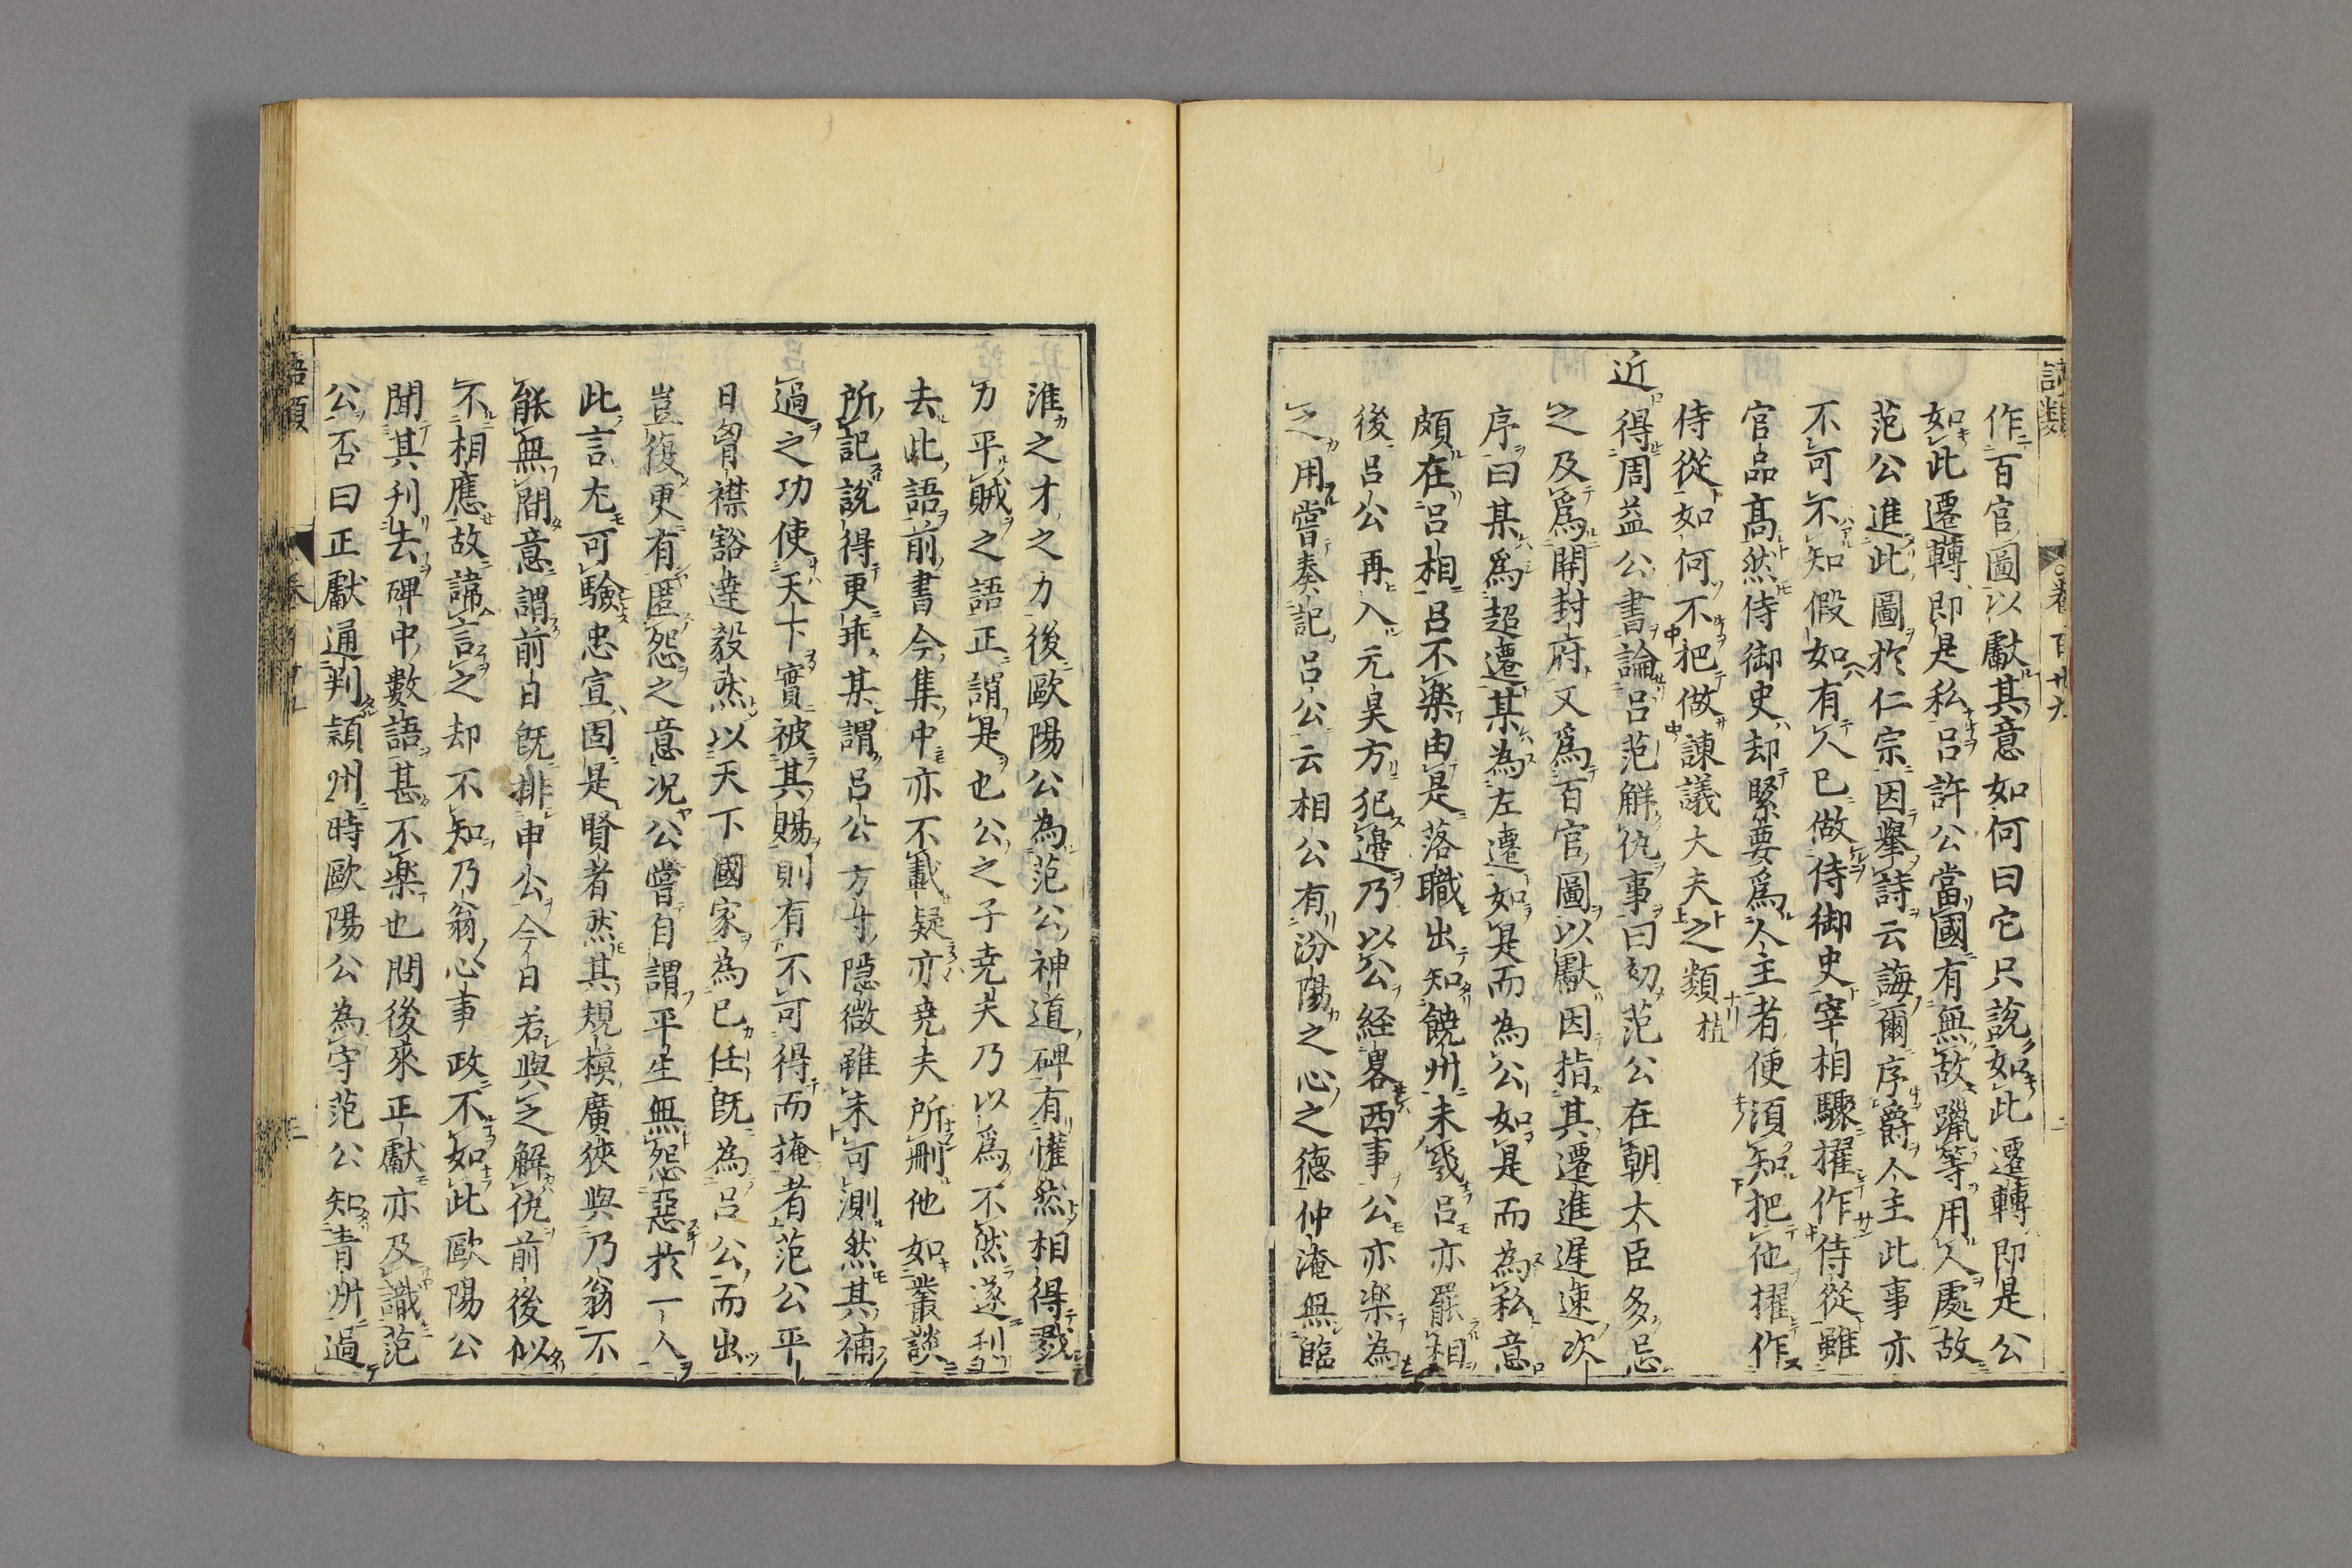 語類
卷百廿九
二
作百官圖以獻其意如何曰它只說如此遷轉即是公
如此遷轉即是私呂許公當國有無故躐等用人處故
范公進此圖於仁宗因舉詩云誨爾序爵人主此事亦
不可不知假如有人已做侍御史宰相驟擢作侍從雖
官品高然侍御史却緊要爲人主者便須知把他擢作
侍從如何不把做諫議大夫之類植
近得周益公書論呂范解仇事曰初范公在朝大臣多忌
之及爲開封府又爲百官圖以獻因指其遷進遲速次
序曰某爲超遷某為左遷如是而為公如是而為私意
頗在呂相呂不楽由是落職出知饒州未㡬呂亦罷相
後呂公再入元昊方犯邉乃以公経畧西事公亦楽為
之用嘗奏記呂公云相公有汾陽之心之徳仲淹無臨
淮之才之力後歐陽公為范公神道碑有懽然相得戮
力平賊之語正謂是也公之子尭夫乃以爲不然遂刋
去此語前書今集中亦不載疑亦尭夫所刪他如叢談
所記說得更乖某謂呂公方寸隱微雖未可測然其補
過之功使天下實被其賜則有不可得而掩者范公平
日胷襟豁達毅然以天下國家為已任既為呂公而出
豈復更有匿怨之意况公嘗自謂平生無怨惡於一人
此言尤可驗忠宣固是賢者然其規模廣狹與乃翁不
能無間意謂前日既排申公今日若與之解仇前後似
不相應故諱言之却不知乃翁心事政不如此歐陽公
聞其刋去碑中數語甚不楽也問後來正獻亦及識范
公否曰正獻通判潁州時歐陽公為守范公知青州過
語類
卷百廿九
三